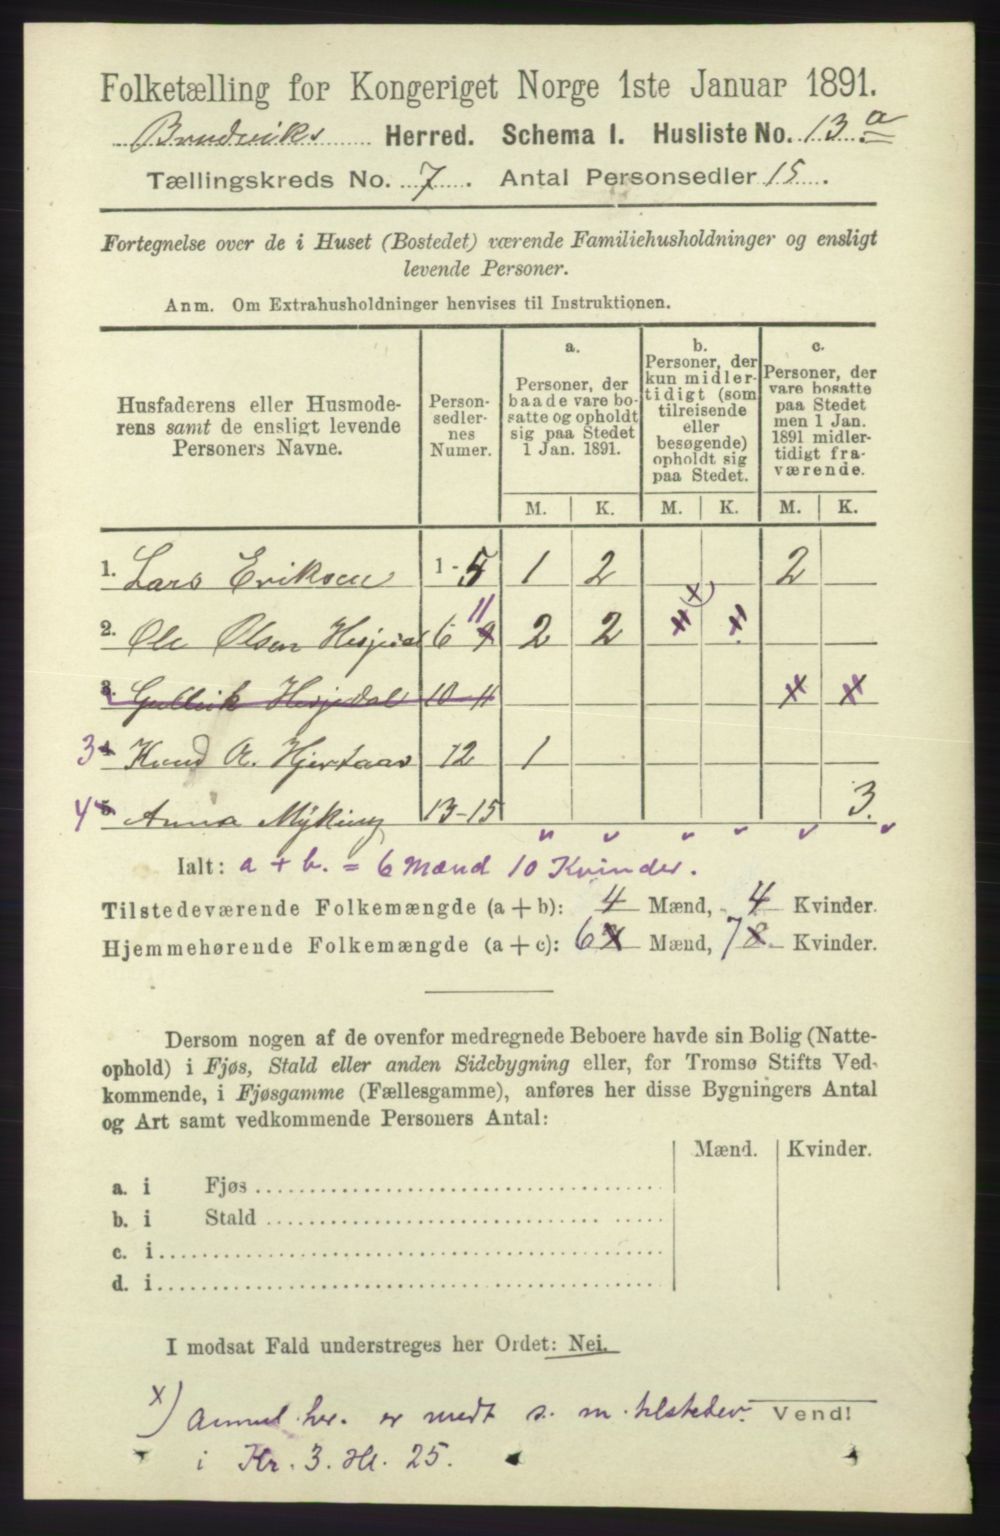 Folketælling for Kongeriget Norge 1ste Januar 1891.
Bruduiks Herred. Schema I. Husliste No. 13 a
Tællingskreds No. 7. Antal Personsedler 15.
Fortegnelse over de i Huset (Bostedet) værende Familiehusholdninger og ensligt
levende Personer.
Anm. Om Extrahusholdninger henvises til Instruktionen.
Husfaderens eller Husmode-
rens samt de ensligt levende
Personers Navne.
Person-
sedler-
nes
Numer.
a.
Personer, der
baade vare bo-
satte og opholdt
sig paa Stedet
1 Jan. 1891.
b.
Personer, der
kun midler-
tidigt (som
tilreisende
eller
besøgende)
opholdt sig
paa Stedet.
c.
Personer, der
vare bosatte
paa Stedet
men 1 Jan.
1891 midler-
tidigt fra-
værende.
M. K. M. K. M. K.
1. Lars Eriksen 1 - 5 1 2 2
2. Ole Olsen Hesjedal 6 11 2 2 x)
3. Gulleik Hesjedal 10 11 x x
3 Knud A. Hjertaas 12 1
4 Anna Myking 13-15 3.
Ialt: a + b. = 6 Mænd 10 Kvinder.
Tilstedeværende Folkemængde (a + b): 4 Mænd, 4 Kvinder.
Hjemmehørende Folkemængde (a + c): 6 Mænd, 7 8 Kvinder.
Dersom nogen af de ovenfor medregnede Beboere havde sin Bolig (Natte-
ophold) i Fjøs, Stald eller anden Sidebygning eller, for Tromsø Stifts Ved-
kommende, i Fjøsgamme (Fællesgamme), anføres her disse Bygningers Antal
og Art samt vedkommende Personers Antal:
Mænd. Kvinder.
a. i Fjøs
b. i Stald
c. i
d. i
I modsat Fald understreges her Ordet: Nei.
x) Anmel. her. er medt s. m. tilstedev.
Vend!
i Kr. 3. Hl. 25.